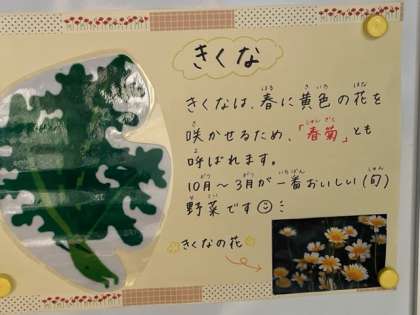 きくな
きくなは、春に黄色の花を
咲かせるため、「春菊」とも
呼ばれます。
10月〜3月が一番おいしい(旬)
野菜です☺
きくなの花